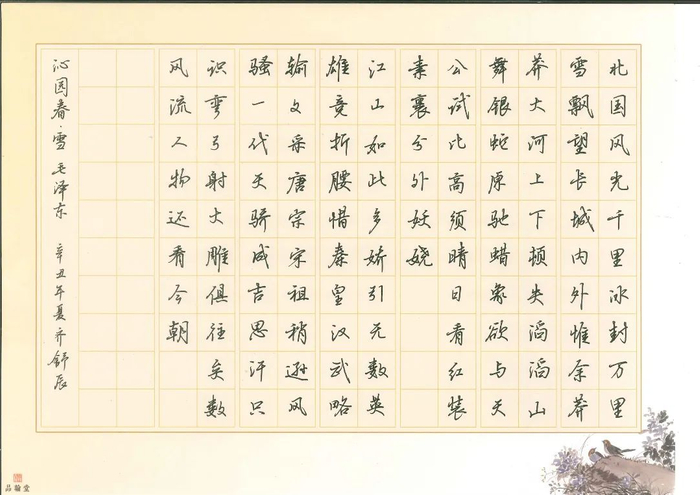 北国风光千里冰封万里
雪飘望长城内外惟余莽
莽大河上下顿失滔滔山
舞银蛇原驰蜡象欲与天
公试比高须晴日看红装
素裹分外妖娆
江山如此多娇引无数英
雄竞折腰惜秦皇汉武略
输文采唐宗宋祖稍逊风
骚一代天骄成吉思汗只
识弯弓射大雕俱往矣数
风流人物还看今朝
沁园春·雪 毛泽东 辛丑年夏齐舒辰
品翰堂